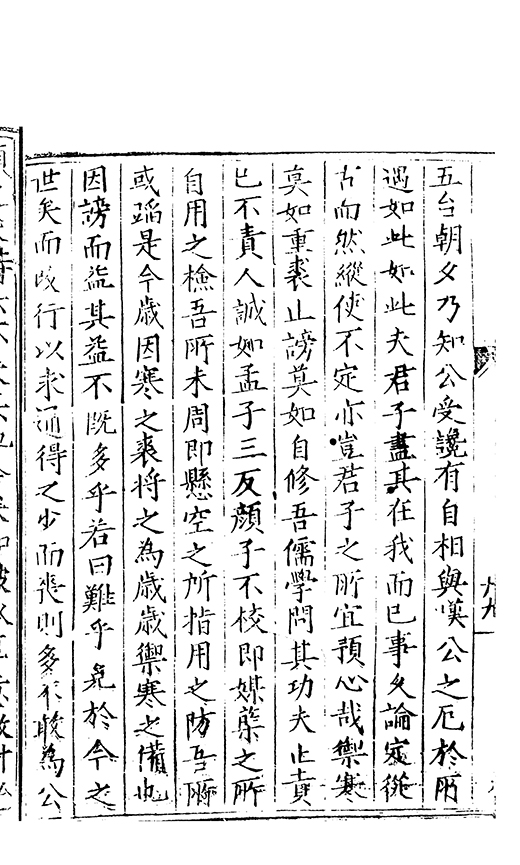 五台朝夕乃知公受讒有自相與嘆公之厄於所
遇如此如此夫君子盡其在我而已事久論定從
古而然縱使不定亦豈君子之所宜預心哉禦寒
莫如重裘止謗莫如自修吾儒學問其功夫止責
已不責人誠如孟子三反顏子不校即媒蘖之所
自用之檢吾所未周即懸空之所指用之防吾所
或蹈是今歲因寒之裘将之為歲歲禦寒之備也
因謗而益其益不既多乎若曰難乎免於今之
世矣而改行以求通得之少而喪則多不敢為公
九